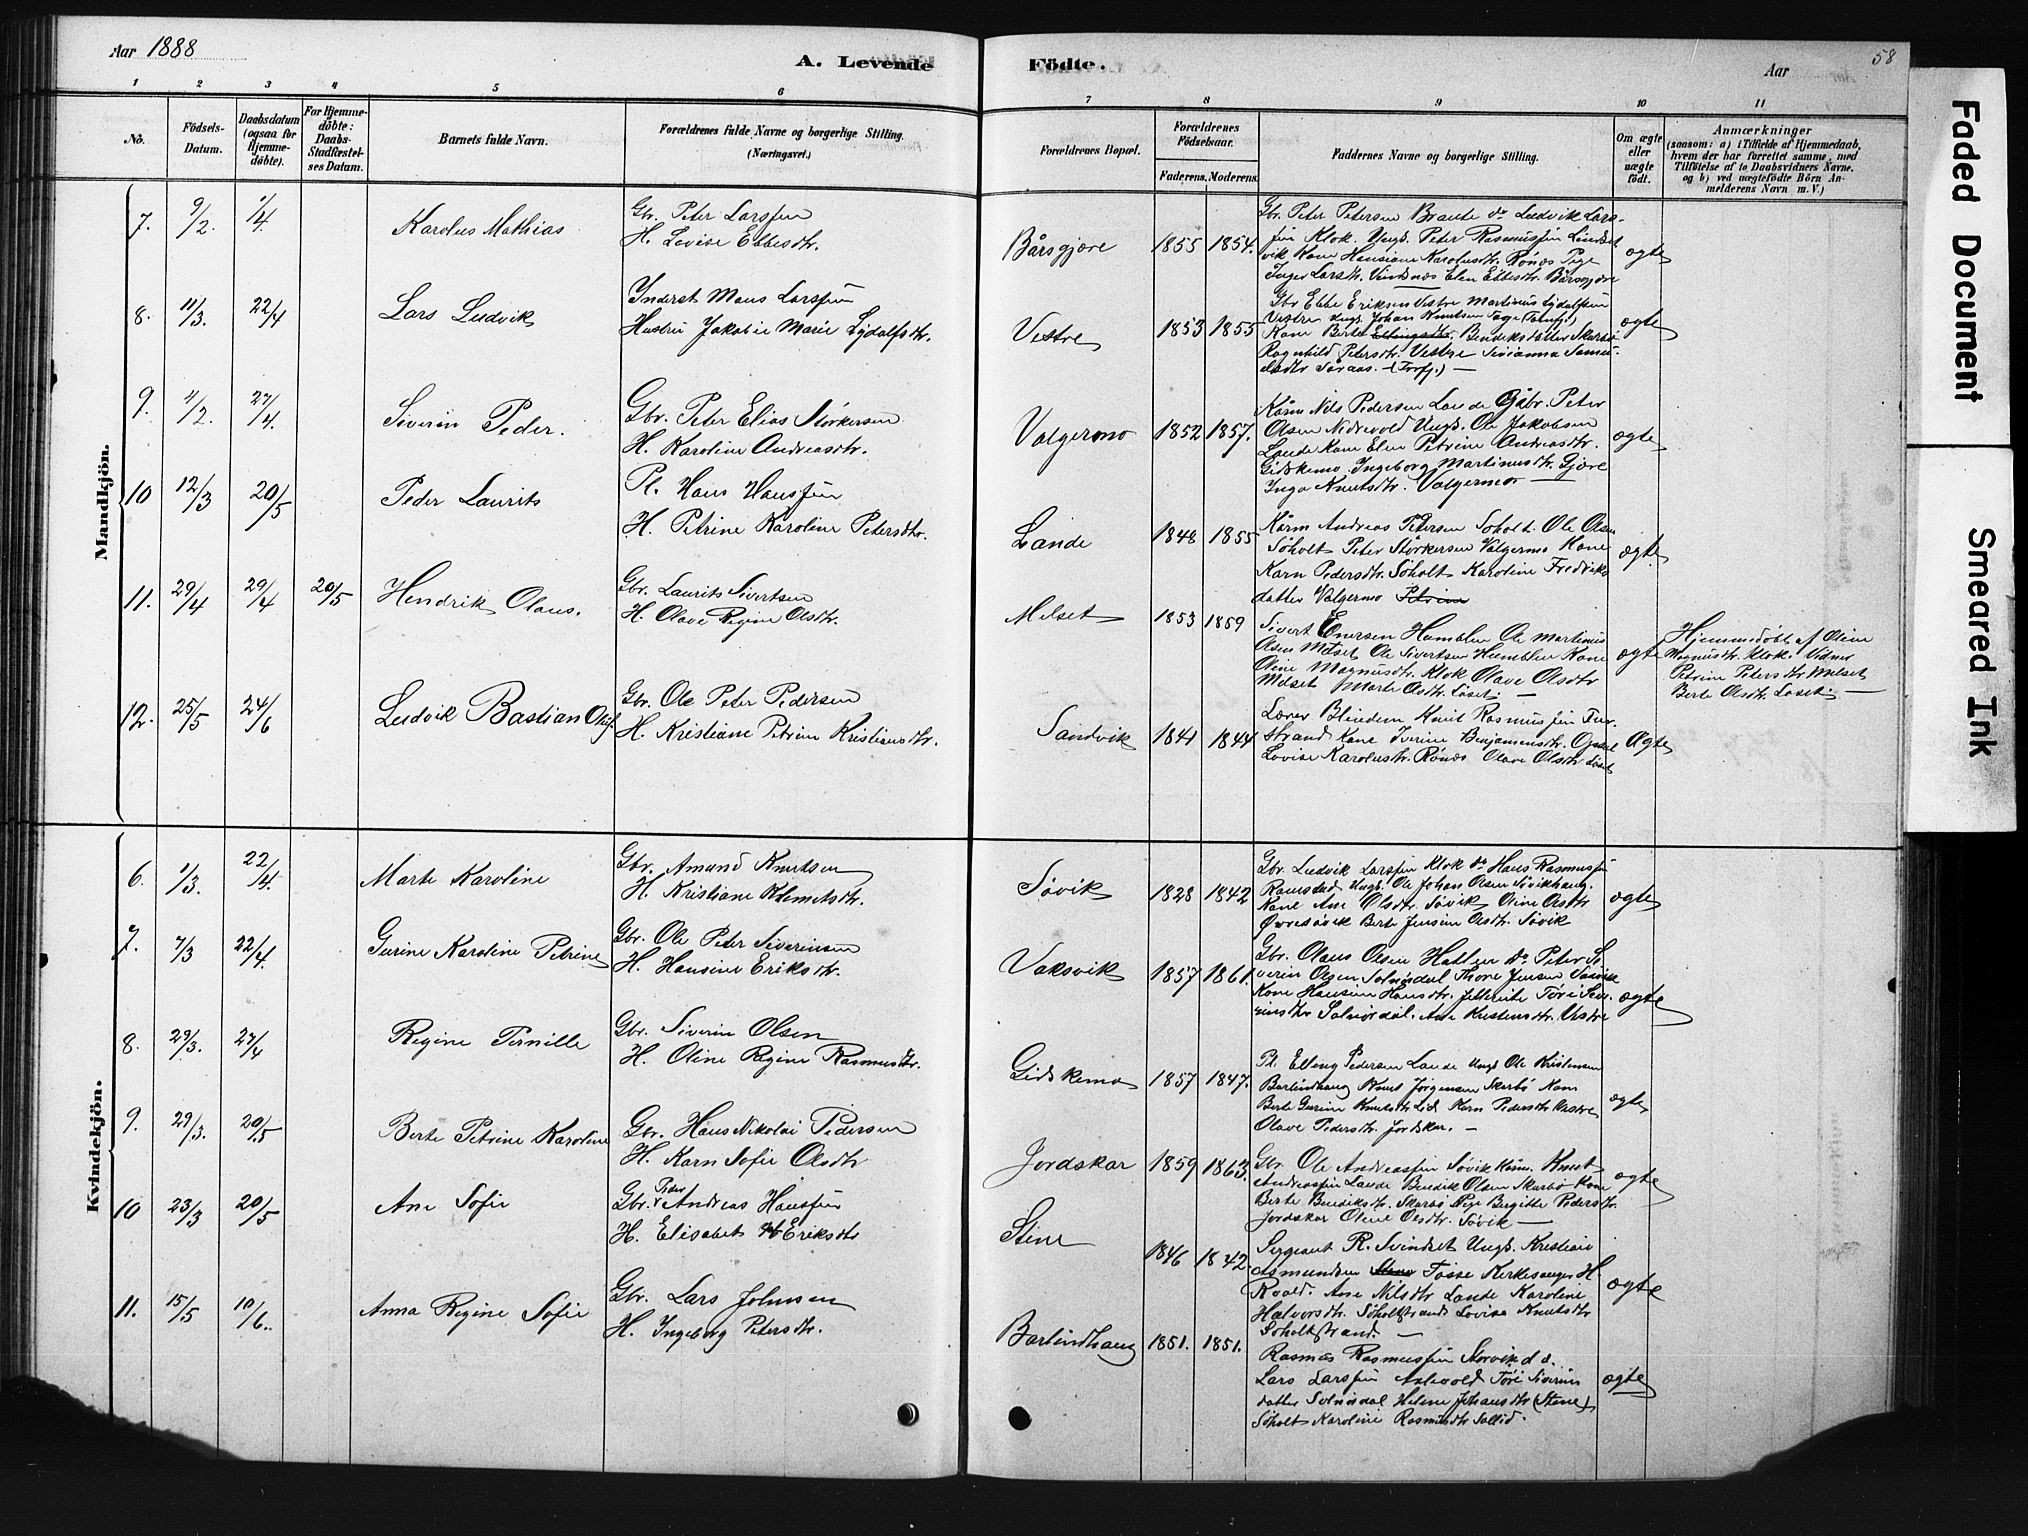 Aar 1888
A. Levende
Födte.
Aar
58
1 2 3 4 5 6 7 8 9 10 11
No.
Födsels-
Datum.
Daabsdatum
(ogsaa for
Hjemme-
döbte).
For Hjemme-
döbte:
Daabs-
Stadfæstel-
ses Datum.
Barnets fulde Navn.
Forældrenes fulde Navne og borgerlige Stilling.
(Næringsvei.)
Forældrenes Bopæl.
Forældrenes
Födselsaar.
Faderens. Moderens.
Faddernes Navne og borgerlige Stilling.
Om ægte
eller
uægte
födt.
Anmærkninger
(saasom: a) i Tilfælde af Hjemmedaab,
hvem der har forrettet samme, med
Tilföielse af to Daabsvidners Navne.
og b) ved uægtefödte Börn An-
melderens Navn m. V.)
Mandkjön.
7. 9/2. 1/4. Karolus Mathias
Gbr. Peter Larssen
H. Lovise Ebbesdtr.
Bårsgjøre 1855 1854.
Gbr. Peter Petersen Braute do Ludvik Lars-
sen Klok. Ungk. Peter Rasmussen Lindset
vik Kone Hansiane Karolusdtr. Rønes Pige
Inger Larsdtr. Vindsnes Elen Ebbesdtr. Bårsgjøre
ægte
8. 11/3. 22/4 Lars Ludvik
Inderst Mons Larssen
Hustru Jakobie Marie Lydolfsdtr.
Vestre 1853 1855
Gbr Ebbe Eriksen Vestre Martinus Lydolfsen
Vestre Ungk. Johan Knutsen
Kone Berte Bendeksdatter Skarbø
Ragnhild Petersdtr. Vestre Sivianna Samu-
elsdtr
ægte
9. 4/2. 27/4. Siverin Peder.
Gbr. Peter Elias Størkersen
H. Karoline Andreasdtr.
Valgermo 1852 1857.
Kårm Nils Pedersen Lande Gbr. Peter
Olsen Nedrevold Ungk. Ole Jakobsen
Lande Kone Elen Petrine Andreasdtr.
Gidskemo Ingeborg Martinusdtr. Gjøre
Inga Knutsdtr. Valgermo
ægte
10 12/3 20/5 Peder Laurits
Pl. Hans Hanssen
H. Petrine Karoline Petersdtr.
Lande 1848 1855
Kårm Andreas Petersen Søholt. Ole Olsen
Søholt Peter Størkersen Valgermo Kone
Karn Pedersdtr. Søholt Karoline Fredriks
datter Valgermo Petrine
ægte
11. 29/4 29/4 20/5 Hendrik Olaus.
Gbr. Laurits Sivertsen
H. Olave Regine Olsdtr.
Melset 1853 1859
Sivert Enersen Humblen Ole Martinus
Olsen Melset Ole Sivertsen Humblen Kone
Oline Magnusdtr. Klok Olave Olsdtr
Melset Marte Olsdtr. Løset.
ægte
Hjemmedøbt af Oline
Magnusdtr. Klok. Vidner
Petrine Petersdtr Melset
Berte Olsdtr. Løset.
12. 25/5 24/6 Ludvik Bastian Oluf
Gbr. Ole Peter Pedersen
H. Kristiane Petrine Kristiansdtr.
Sandvik 1841 1844
Lærer Blindem Knut Rasmussen Fur-
strand Kone Iverine Benjaminsdtr.
Lovise Karolusdtr. Rønes Olave Olsdtr Løset
Ægte
Kvindekjön.
6. 1/3. 22/4. Marte Karoline
Gbr. Amund Knutsen
H. Kristiane Klemetsdtr.
Søvik 1828 1842
Gbr. Ludvik Larssen Klok do Hans Rasmussen
Ramstad Ungk. Ole Johan Olsen Søvikhaug.
Kone Ane Olsdtr. Søvik Oline Olsdtr
Øvresøvik Berte Jensine Olsdtr. Søvik
ægte
7. 7/3 22/4. Gurine Karoline Petrine
Gbr. Ole Peter Siverinsen
H. Hansine Eriksdtr.
Vaksvik 1857 1861.
Gbr. Olaus Olsen Hatlen do Peter Si-
verin Olsen Solnørdal Thore Jensen Vaksvik
Kone Hansine Hansdtr. Tøri Seve-
rinsdtr Solnørdal. Ane Kristensdtr. Vestre
ægte
8. 29/3. 27/4 Regine Pernille
Gbr. Siverin Olsen
H. Oline Regine Rasmusdtr.
Gidskemo 1857 1847.
Pl. Elling Pedersen Lande Ungk Ole Kristensen
Barlindhaug Knut Jørgensen Skarbø Kone
Berte Gurine Knutsdtr Lid Karn Pedersdtr Vestre
Olave Pedersdtr. Jordskar.
ægte
9. 29/3. 20/5 Berte Petrine Karoline
Gbr. Hans Nikolai Pedersen
H. Karn Sofie Olsdtr
Jordskar 1859 1863.
Gbr. Ole Andreassen Søvik Kårm. Knut
Andreassen Lande Bendik Olsen Skarbø Kone
Berte Bendiksdtr. Skarbø Pige Birgitte Pedersdtr.
Jordskar Oline Olsdtr. Søvik
ægte
10 23/3 20/5 Ane Sofie
Gbr. Peder Andreas Hanssen
H. Elisabet Eriksdtr
Stene 1846 1842
Sergeant R. Svindset Ungk. Kristian
Asmundsen Stene Tøsse Kirkesanger H.
Roald. Ane Nilsdtr Lande Karoline
Halvorsdtr. Søholtstrand Lovise Knutsdtr
Søholtstrand.
ægte
11. 15/5 10/6. Anna Regine Sofie
Gbr. Lars Johnsen
H. Ingeborg Petersdtr.
Barlindhaug 1851. 1851.
Rasmus Rasmussen Storvik d.d.
Lars Larssen Aslevold Tøri Siverins
datter Solnørdal Helene Johansdtr (Stene)
Søholt Karoline Rasmusdtr
ægte
Faded Document
Smeared Ink